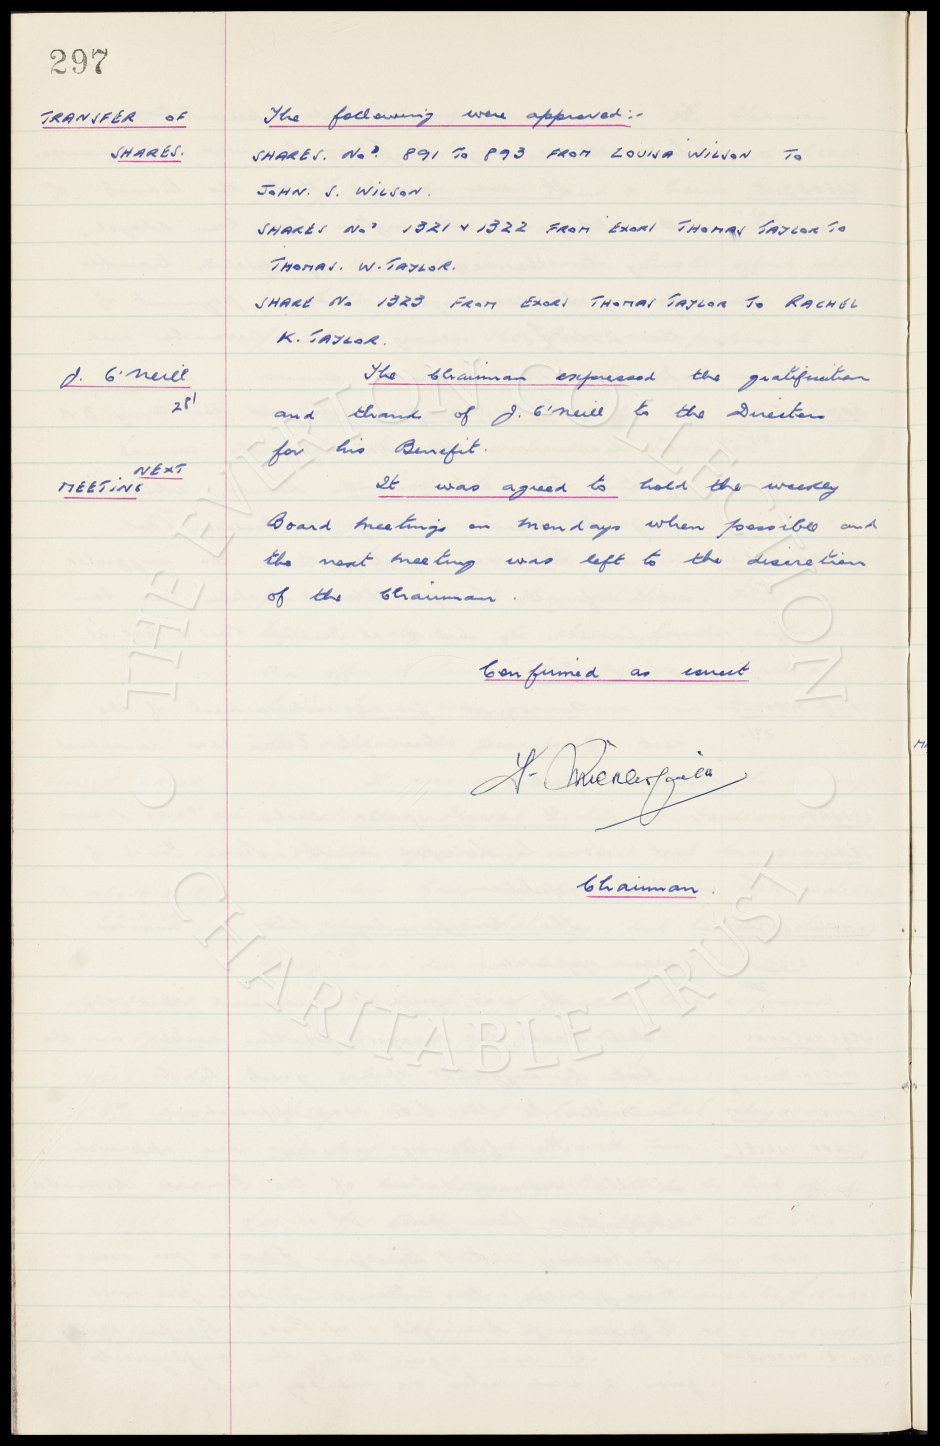 297
TRANSFER OF
SHARES.
The following were approved:-
SHARES. Nos. 891 TO 893 FROM LOUISA WILSON TO
JOHN. S. WILSON.
SHARES Nos 1321 & 1322 FROM EXORS THOMAS TAYLOR TO
THOMAS. W. TAYLOR.
SHARE No 1323 FROM EXORS THOMAS TAYLOR TO RACHEL
K. TAYLOR.
J. O'Neill
281
The Chairman expressed the gratification
and thanks of J. O'Neill to the Directors
for his Benefit.
NEXT
MEETING
It was agreed to hold the weekly
Board meetings on Mondays when possible and
the next meeting was left to the discretion
of the Chairman.
Confirmed as correct
Chairman.
THE EVERTON COLLECTION
CHARITABLE TRUST